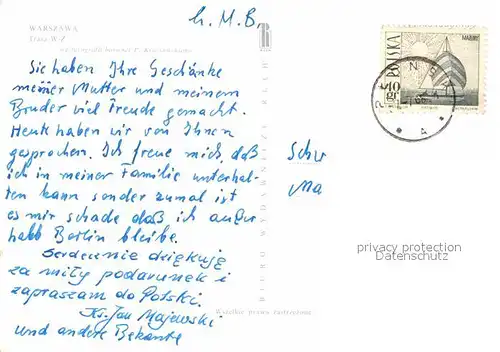 h. M. B.
WARSZAWA
Trasa W-Z
Sie haben Ihre Geschänke
meiner Mutter und meinem
Bruder viel Freude gemacht.
Heute haben wir von Ihnen
gesprochen. Ich freue mich, daß
ich in meiner Familie unterhal-
ten kann sonder zumal ist
es mir schade daß ich außer
halb Berlin bleibe.
Serdecznie dziękuję
za miły podarunek i
zapraszam do Polski.
Ks. Jan Majewski
und andere Bekante
BIURO WYDAWNICZE RUCH
Wszelkie prawa zastrzeżone
POLSKA
10 gr
Schw
Ma
privacy protection
Datenschutz